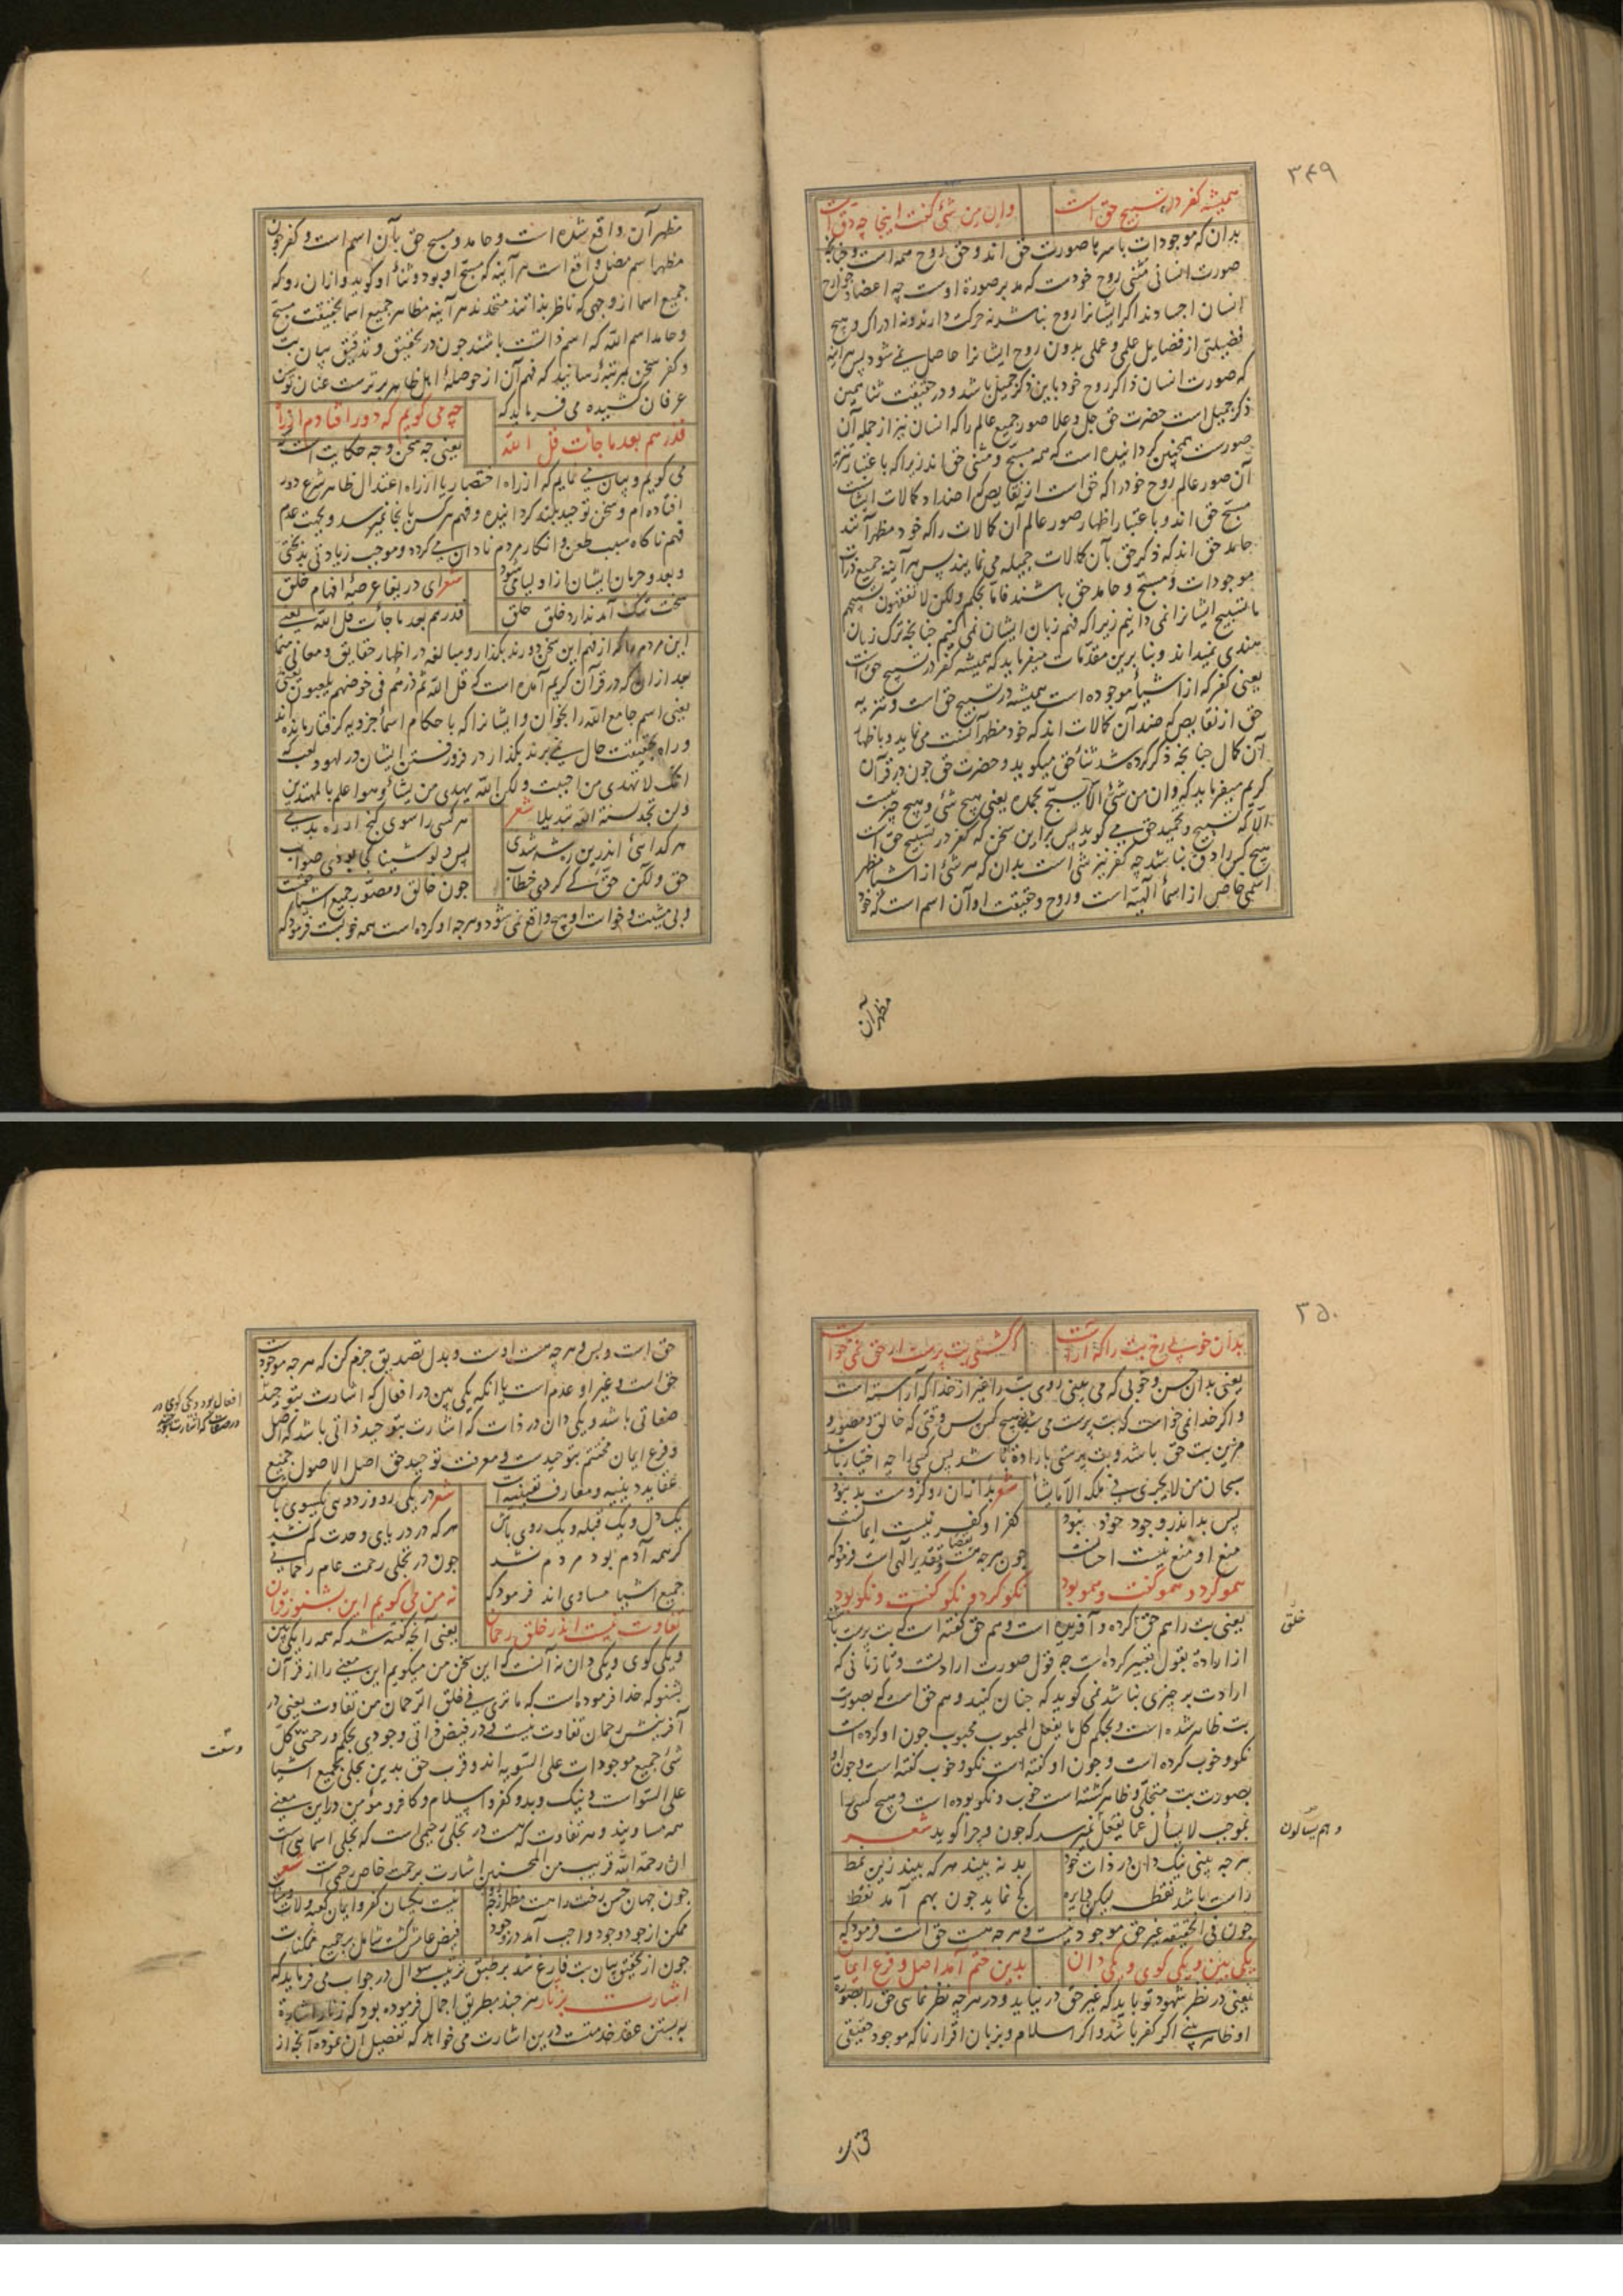 ۳۴۹
همیشه کفر در تسبیح حق است
وان من شئ گفت اینجا چه دق است
بدان که موجودات باسرها صورت حق اند و حق روح همه است و چنانچه
صورت انسانی مثنی روح خودست که مدبر صورة اوست چه اعضا و جوارح
انسان اجسادند اگر ایشانرا روح نباشد نه حرکت دارند و نه ادراک و هیچ
فضیلتی از فضایل علمی و عملی بدون روح ایشانرا حاصل نمی شود پس هرآینه
که صورت انسان ذاکر روح خود باین ذکر جمیل باشد و در حقیقت شنا همین
ذکر جمیل است حضرت حق جل و علا صور جمیع عالم را که انسان نیز از جمله آن
صورست همچنین گردانیده است که همه مسبح و مثنی حق اند زیرا که باعتبار تنزیه
آن صور عالم روح خود را که حق است از نقایص که اضداد کمالات ایشانست
مسبح حق اند و باعتبار اظهار صور عالم آن کمالات را که خود مظهر آنند
حامد حق اند که ذکر حق بآن کمالات جمیله می نمایند پس هرآینه جمیع ذرات
موجودات مسبح و حامد حق باشند فاما بحکم ولکن لا تفقهون تسبیحهم
ما تسبیح ایشانرا نمی دانیم زیرا که فهم زبان ایشان نمی کنیم چنانچه ترک زبان
هندی نمیداند و بنابرین مقدمات میفرماید که همیشه کفر در تسبیح حق است
یعنی کفر که از اشیأ موجوده است همیشه در تسبیح حق است و تنزیه
حق از نقایص که ضد آن کمالات اند که خود مظهر آنست می نماید و باظهار
آن کمال چنانچه ذکر کرده شد ثنأ حق میگوید و حضرت حق چون در قرآن
کریم میفرماید که وان من شئ الا یسبح بحمده یعنی هیچ شئ و هیچ چیز نیست
الا که تسبیح و تحمید حق می گوید پس برین سخن که کفر در تسبیح حق است
هیچ کس را دق نباشد چه کفر نیز شئ است بدان که هر شئ از اشیا مظهر
اسمی خاص از اسمأ الهیه است و روح و حقیقت او آن اسم است که خود
مظهر آن
مظهر آن واقع شده است و حامد و مسبح حق بآن اسم است و کفر چون
مظهر اسم مضل واقع است هرآینه که مسبح او بود و ثنأ او گوید و از آن رو که
جمیع اسما از وجهی که ناظر بذاتند متحدند هرآینه مظاهر جمیع اسما بحقیقت مسبح
و حامد اسم الله که اسم ذاتست باشند چون در تحقیق و تدقیق بیان بت
و کفر سخن بمرتبهٔ رسانید که فهم آن از حوصلهٔ اهل ظاهر برترست عنان توسن
عرفان کشیده می فرماید که
چه می گویم که دور افتادم از راه
فذرهم بعد ما جاءت قل الله
یعنی چه سخن و چه حکایت است که
می گویم و بیان می نمایم که از راه اختصار یا از راه اعتدال ظاهر شرع دور
افتاده ام و سخن توحید بلند گردانیده و فهم هرکس بآنجا نمیرسد و بجهت عدم
فهم ناگاه سبب طعن و انکار مردم نادان می گردد و موجب زیادتی بدبختی
و بعد و حرمان ایشان از اولیا می شود
شعر ای دریغا عرصهٔ افهام خلق
سخت تنگ آمد ندارد خلق حلق
فذرهم بعد ما جاءت قل الله یعنی
این مردم را که از فهم این سخن دورند بگذار و مبالغه در اظهار حقایق و معانی منما
بعد از آن که در قرآن کریم آمده است که قل الله ثم ذرهم فی خوضهم یلعبون یعنی
یعنی اسم جامع الله را بخوان و ایشانرا که باحکام اسمأ جزویه گرفتار مانده اند
و راه بحقیقت حال نمی برند بگذار در فرو رفتن ایشان در لهو و لعب که
انک لا تهدی من احببت ولکن الله یهدی من یشأ وهو اعلم بالمهتدین
ولن تجد لسنة الله تبدیلا شعر
هر کسی را سوی گنج ار ره بدی
هر گدائی اندرین ره شه شدی
پس و لو شینا کی بودی صواب
حق ولکن حق کی کردی خطاب
چون خالق و مصور جمیع اشیا حقست
و بی مشیت و خواست او هیچ واقع نمی شود و هرچه او کرده است همه خوبست فرمود که
۳۵۰
بدان خوبی رخ بت را که آراست
که گشتی بت پرست ار حق نمی خواست
یعنی بدان حسن و خوبی که می بینی روی بت را غیر از خدا که آراسته است
و اگر خدا نمی خواست که بت پرست می شد هیچ کس پس وقتی که خالق و مصور و
مزین بت حق باشد و بت پرستی بارادة باشد پس کسی را چه اختیار باشد
سبحان من لا یجری فی ملکه الا ما یشأ
شعر بد از آن رو کزوست بد نبود
پس بد اندر وجود خود نبود
کفر او کفر نیست ایمانست
منع او منع نیست احسانست
چون هرچه هست قضا و تقدیر الهی است فرمود که
همو کرد و همو گفت و همو بود
نکو کرد و نکو گفت و نکو بود
یعنی بت را هم حق کرده و آفریده است و هم حق گفته است که بت پرست باشد
خلق
از اراده بقول تعبیر کرده است چه قول صورت ارادتست و تا زمانی که
ارادت بر چیزی نباشد نمی گوید که چنان کنید و هم حق است که بصورت
بت ظاهر شده است و بحکم کل ما یفعل المحبوب محبوب چون او کرده است
نکو و خوب کرده است و چون او گفته است نکو و خوب گفته است و چون او
بصورت بت متجلی و ظاهر گشته است خوب و نکو بوده است و هیچ کس را
بموجب لا یسأل عما یفعل نمیرسد که چون و چرا گوید شعر
و هم یسألون
هرچه بینی نیک دان در ذات خود
بد نه بیند هرکه بیند زین نمط
راست باشد نقطه بیکر دایره
کج نماید چون بهم آمد نقط
چون فی الحقیقه غیر حق موجود نیست و هرچه هست حق است فرمود که
یکی بین و یکی گوی و یکی دان
بدین ختم آمد اصل و فرع ایمان
یعنی در نظر شهود تو باید که غیر حق در نیاید و در هرچه نظر نمائی حق را بصورة
او ظاهر بینی اگر کفر باشد و اگر اسلام و بزبان اقرار نما که موجود حقیقی
حق است
حق است و بس و هرچه هست اوست و بدل تصدیق جزم کن که هرچه موجودست
حق است و غیر او عدم است یا آنکه یکی بین در افعال که اشارت بتوحید
افعال بود و یکی گوی در
در صفات که اشارت بتوحید
صفاتی باشد و یکی دان در ذات که اشارت بتوحید ذاتی باشد که اصل
و فرع ایمان مختتم بتوحیدست و معرفت توحید حق اصل الاصول جمیع
عقاید دینیه و معارف یقینیه است
شعر در یکی رو وز دوی یکسوی باش
یک دل و یک قبله و یک روی باش
هرکه در دریای وحدت گم نشد
گر همه آدم بود مردم نشد
چون در تجلی رحمت عام رحمانی
جمیع اشیا مساوی اند فرمود که
نه من می گویم این بشنو ز قرآن
تفاوت نیست اندر خلق رحمان
یعنی آنچه گفته شد که همه را یکی بین
و یکی گوی و یکی دان نه آنست که این سخن من میگویم این معنی را از قرآن
بشنو که خدا فرموده است که ما تری فی خلق الرحمان من تفاوت یعنی در
آفرینش رحمان تفاوت نیست و در فیض ذاتی وجودی بحکم و رحمتی کل
وسعت
شئ جمیع موجودات علی السویه اند و قرب حق بدین تجلی بجمیع اشیا
علی السواست و نیک و بد و کفر و اسلام و کافر و مؤمن در این معنی
همه مساویند و هر تفاوت که هست در تجلی رحیمی است که تجلی اسمائی است
ان رحمة الله قریب من المحسنین اشارت برحمت خاص رحیمی است شعر
چون جهان حسن رخت راست مظهر
نیست یکسان کفر و ایمان کعبه و لات و منات
ممکن از جود وجود واجب آمد در وجود
فیض عامش گشت شامل بر جمیع ممکنات
چون از تحقیق بیان بت فارغ شد بر طبق ترتیب سوال در جواب می فرماید که
اشارت بزنار هرچند بطریق اجمال فرموده بود که زنار اشارة
به بستن عقد خدمتست درین اشارت می خواهد که تفصیل آن نموده آنچه از